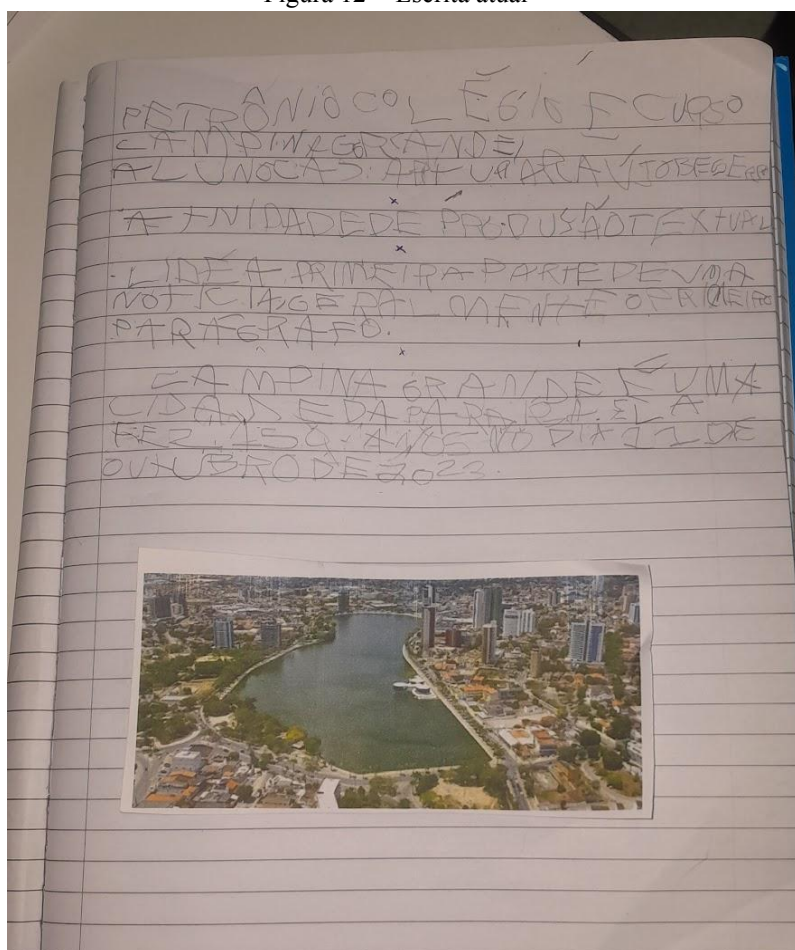 Figura 12 – Escrita atual
PETRÔNIO COLÉGIO E CURSO
CAMPINA GRANDE,
ALUNO CAS: ARTUR ARAÚJO BEZERRA
ATIVIDADE DE PRODUSÃO TEXTUAL
. LIDÉ A PRIMEIRA PARTE DE UMA
NOTICIA, GERALMENTE O PRIMEIRO
PARAGRAFO.
CAMPINA GRANDE É UMA
CIDADE DA PARAIBA. ELA
FEZ 159 ANOS NO DIA 11 DE
OUTUBRO DE 2023.